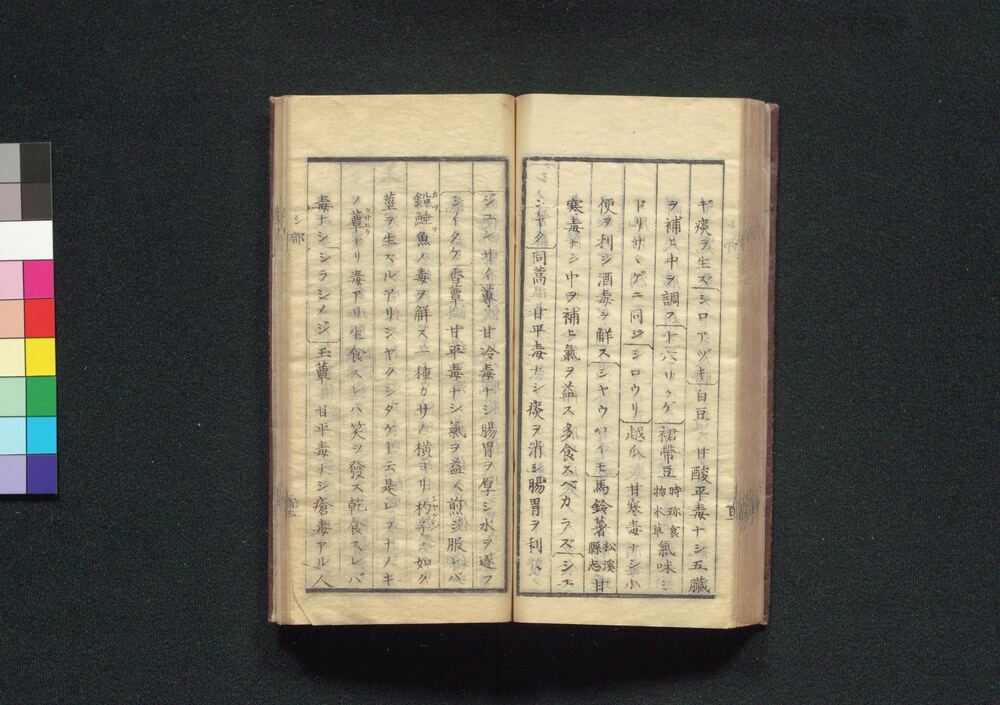 ギ痰ヲ生ズシロアヅキ白豆 甘酸平毒ナシ五臓
ヲ補ヒ中ヲ調フ十六サヽゲ裙帶豆 時珍食物本草 氣味ミ
ドリサヽゲニ同ジシロウリ越瓜 甘寒毒ナシ小
便ヲ利シ酒毒ヲ解スジヤウロイモ馬鈴薯 松溪縣志 甘
寒毒ナシ中ヲ補ヒ氣ヲ益ス多食スベカラズシユ
ンギク同蒿 甘平毒ナシ痰ヲ消シ腸胃ヲ利ス
ジユンサイ蓴 甘冷毒ナシ腸胃ヲ厚シ水ヲ逐フ
シイタケ香蕈 甘平毒ナシ氣ヲ益ス煎ジ服レバ
鉛錘魚ノ毒ヲ解ス一種カサノ横ヨリ杓子ノ如ク
莖ヲ生スルアリシヤクシダケト云是レヲナノキ
ノ蕈トリ毒アリ生食スレバ笑ヲ發ス乾食スレバ
毒ナシシラシメジ玉蕈 甘平毒ナシ瘡毒アル人
シ部